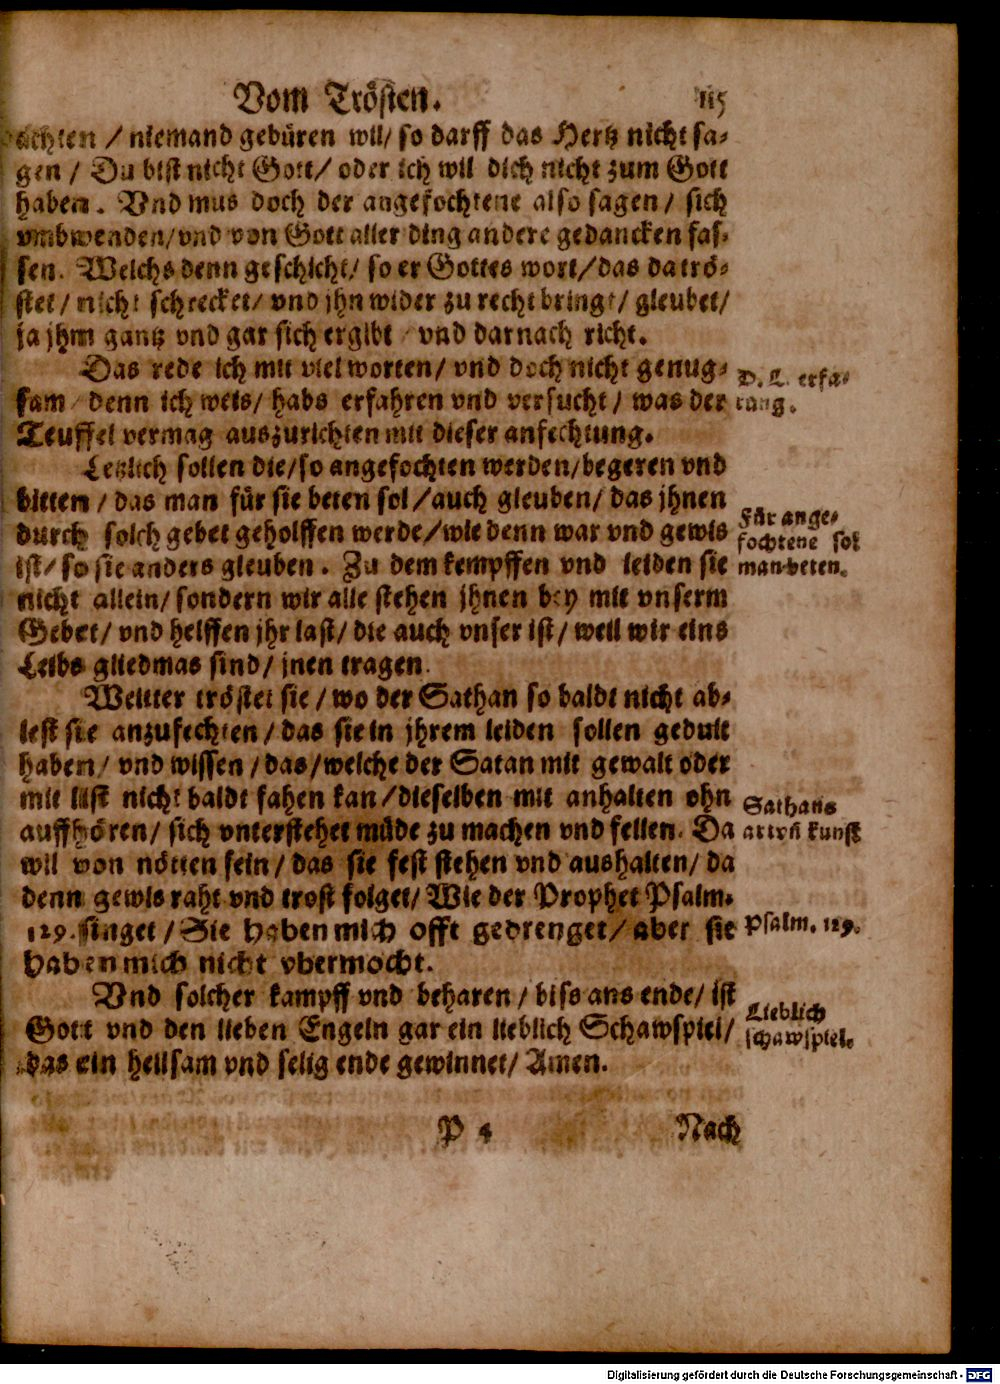 Vom Trösten. 115
achten / niemand gebüren wil/ so darff das Hertz nicht sa-
gen / Du bist nicht Gott/ oder ich wil dich nicht zum Gott
haben. Vnd mus doch der angefochtene also sagen/ sich
vmbwenden/vnd von Gott aller ding andere gedancken fas-
sen. Welchs denn geschicht/ so er Gottes wort/das da trö-
stet/ nicht schrecket/ vnd jhn wider zu recht bringt/ gleubet/
ja jhm gantz vnd gar sich ergibt / vnd darnach richt.
Das rede ich mit viel worten/ vnd doch nicht genug-
sam / denn ich weis/ habs erfahren vnd versucht/ was der
Teuffel vermag auszurichten mit dieser anfechtung.
D. L. erfa-
rung.
Letzlich sollen die/so angefochten werden/begeren vnd
bitten / das man für sie beten sol/auch gleuben/ das jhnen
durch solch gebet geholffen werde/wie denn war vnd gewis
ist/ so sie anders gleuben. Zu dem kempffen vnd leiden sie
nicht allein/ sondern wir alle stehen jhnen bey mit vnserm
Gebet/ vnd helffen jhr last/ die auch vnser ist/ weil wir eins
Leibs gliedmas sind/ jnen tragen.
Für ange-
fochtene sol
man beten.
Weitter tröstet sie / wo der Sathan so baldt nicht ab-
lest sie anzufechten/ das sie in jhrem leiden sollen gedult
haben/ vnd wissen /das/welche der Satan mit gewalt oder
mit list nicht baldt fahen kan/dieselben mit anhalten ohn
auffhören/ sich vnterstehet müde zu machen vnd fellen. Da
wil von nötten sein/ das sie fest stehen vnd aushalten/ da
denn gewis raht vnd trost folget/ Wie der Prophet Psalm.
129. singet / Sie haben mich offt gedrenget/ aber sie
haben mich nicht vbermocht.
Sathans
art vñ kunst
Psalm. 129.
Vnd solcher kampff vnd beharen / biss ans ende/ ist
Gott vnd den lieben Engeln gar ein lieblich Schawspiel/
das ein heilsam vnd selig ende gewinnet/ Amen.
Lieblich
schawspiel.
P 4 Nach
Digitalisierung gefördert durch die Deutsche Forschungsgemeinschaft - DFG